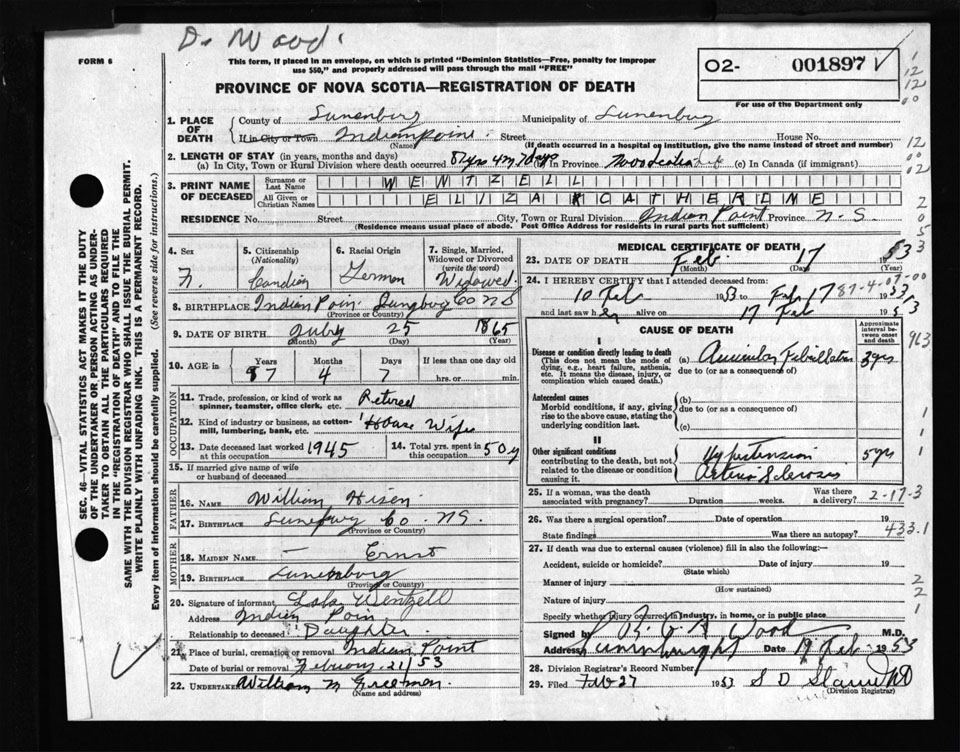 Dr Wood.
FORM 6
This form, if placed in an envelope, on which is printed "Dominion Statistics—Free, penalty for improper
use $50," and properly addressed will pass through the mail "FREE"
PROVINCE OF NOVA SCOTIA—REGISTRATION OF DEATH
02- 001897
For use of the Department only
SEC. 46—VITAL STATISTICS ACT MAKES IT THE DUTY
OF THE UNDERTAKER OR PERSON ACTING AS UNDER-
TAKER TO OBTAIN ALL THE PARTICULARS REQUIRED
IN THE "REGISTRATION OF DEATH" AND TO FILE THE
SAME WITH THE DIVISION REGISTRAR WHO SHALL ISSUE THE BURIAL PERMIT.
WRITE PLAINLY WITH UNFADING INK. THIS IS A PERMANENT RECORD.
Every item of information should be carefully supplied. (See reverse side for instructions.)
1. PLACE OF DEATH
County of Lunenburg Municipality of Lunenburg
If in City or Town Indian Point Street House No.
(Name) (If death occurred in a hospital or institution, give the name instead of street and number)
2. LENGTH OF STAY (in years, months and days)
(a) In City, Town or Rural Division where death occurred 87yrs 4m 7days (b) In Province (c) In Canada (if immigrant)
3. PRINT NAME OF DECEASED
Surname or Last Name WENTZELL
All Given or Christian Names ELIZA CATHERINE
RESIDENCE No. Street City, Town or Rural Division Indian Point Province N.S.
(Residence means usual place of abode. Post Office Address for residents in rural parts not sufficient)
4. Sex
F.
5. Citizenship
(Nationality)
6. Racial Origin
German
7. Single, Married,
Widowed or Divorced
(write the word)
Widowed
8. BIRTHPLACE Indian Poin Co NS
(Province or Country)
9. DATE OF BIRTH 25 1865
(Month) (Day) (Year)
10. AGE in Years Months Days If less than one day old
87 4 7 hrs. or min.
OCCUPATION
11. Trade, profession, or kind of work as
spinner, teamster, office clerk, etc. Retired
12. Kind of industry or business, as cotton-
mill, lumbering, bank, etc. House Wife
13. Date deceased last worked at this occupation 1945
14. Total yrs. spent in this occupation 50 y
15. If married give name of wife
or husband of deceased
FATHER
16. NAME William
17. BIRTHPLACE Co NS.
(Province or Country)
MOTHER
18. MAIDEN NAME — Ernst
19. BIRTHPLACE Lunenburg
(Province or Country)
20. Signature of informant Lola Wentzell
Address Indian Poin
Relationship to deceased Daughter.
21. Place of burial, cremation or removal Indian Point
Date of burial or removal 21/53
22. Undertaker William M
(Name and address)
MEDICAL CERTIFICATE OF DEATH
23. DATE OF DEATH Feb. 17 1953
(Month) (Day) (Year)
24. I HEREBY CERTIFY that I attended deceased from:
10 Feb 1953 to Feb 17 1953
87-4-07-00
and last saw her alive on 17 Feb 1953
CAUSE OF DEATH
Approximate interval between onset and death
I
Disease or condition directly leading to death
(This does not mean the mode of
dying, e.g., heart failure, asthenia,
etc. It means the disease, injury, or
complication which caused death.)
(a) Auricular Fibrillation 3yrs
due to (or as a consequence of)
Antecedent causes
Morbid conditions, if any, giving
rise to the above cause, stating the
underlying condition last.
(b)
due to (or as a consequence of)
(c)
II
Other significant conditions
contributing to the death, but not
related to the disease or condition
causing it.
Hypertension 5yrs
Arterio Sclerosis
25. If a woman, was the death
associated with pregnancy? Duration weeks. Was there a delivery?
2-17-3
26. Was there a surgical operation? Date of operation 19
State findings Was there an autopsy?
433.1
27. If death was due to external causes (violence) fill in also the following:—
Accident, suicide or homicide? Date of injury 19
(State which)
Manner of injury
(How sustained)
Nature of injury
Specify whether injury occurred in industry, in home, or in public place
Signed by Wood M.D.
Address Date 19 Feb 1953
28. Division Registrar's Record Number
29. Filed Feb 27 1953 S D MD
(Division Registrar)